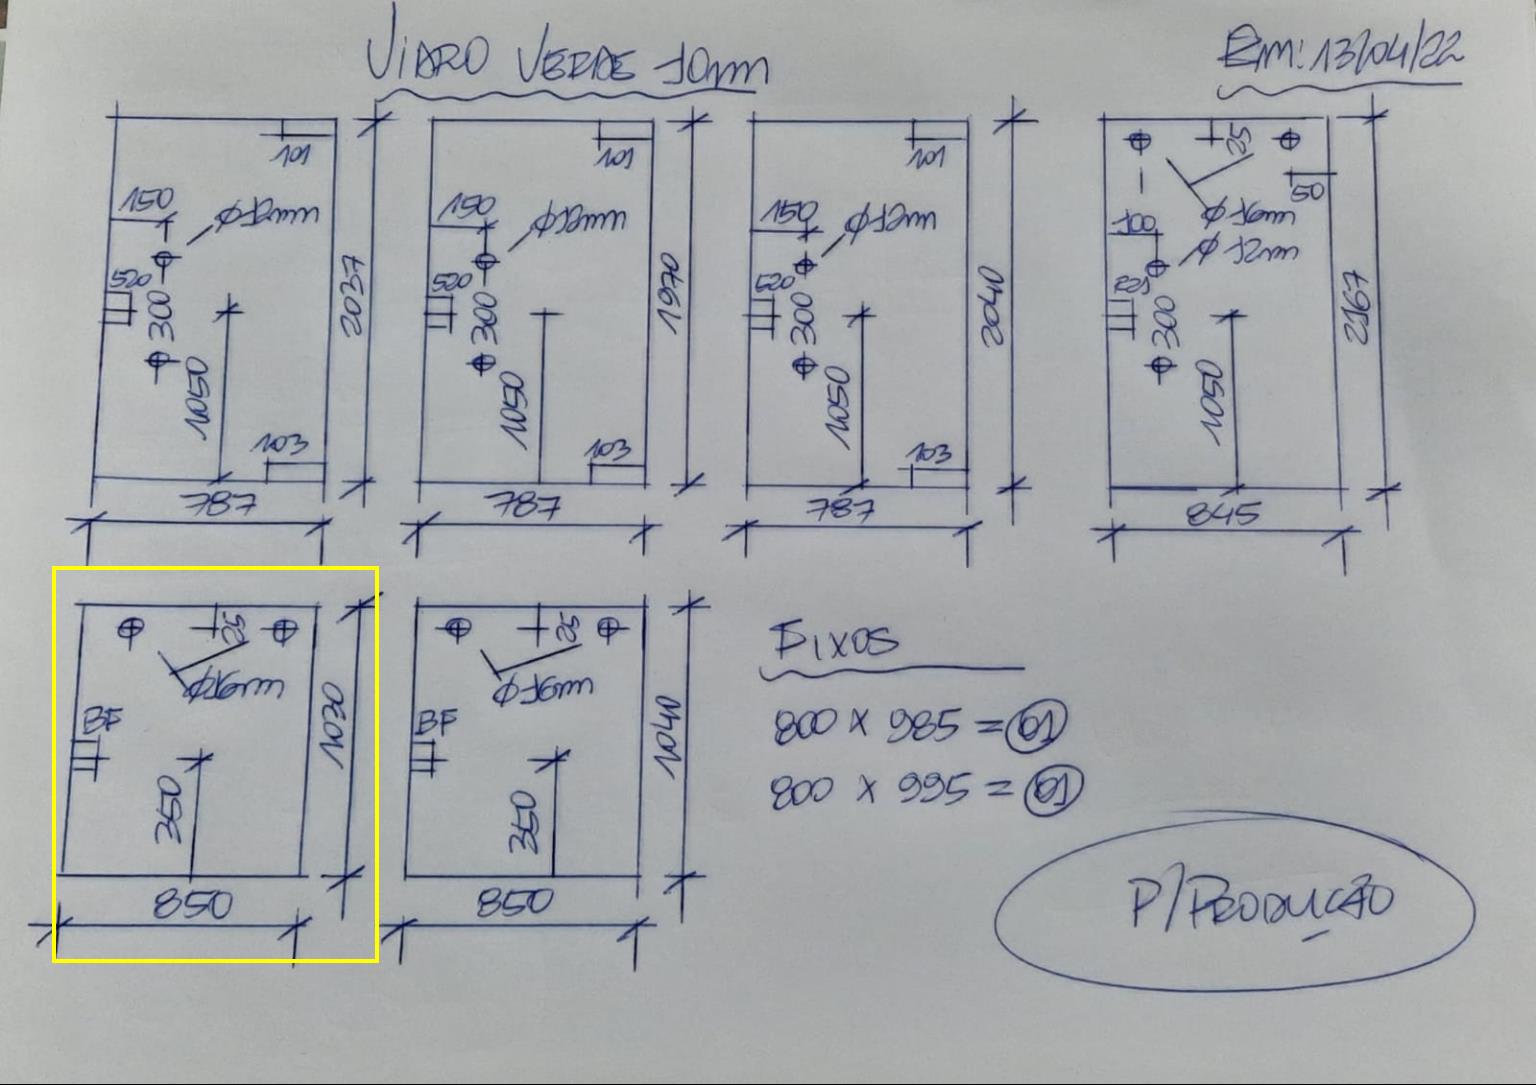 VIDRO VERDE 10mm
Em: 13/04/22
101
150
Φ12mm
520
300
1050
2037
103
787
101
150
Φ12mm
520
300
1050
1970
103
787
101
150
Φ12mm
520
300
1050
2040
103
787
25
50
Φ16mm
100
Φ12mm
300
1050
845
25
Φ16mm
BF
350
1030
850
25
Φ16mm
BF
350
1040
850
FIXOS
800 x 985 = 01
800 x 995 = 01
P/PRODUÇÃO